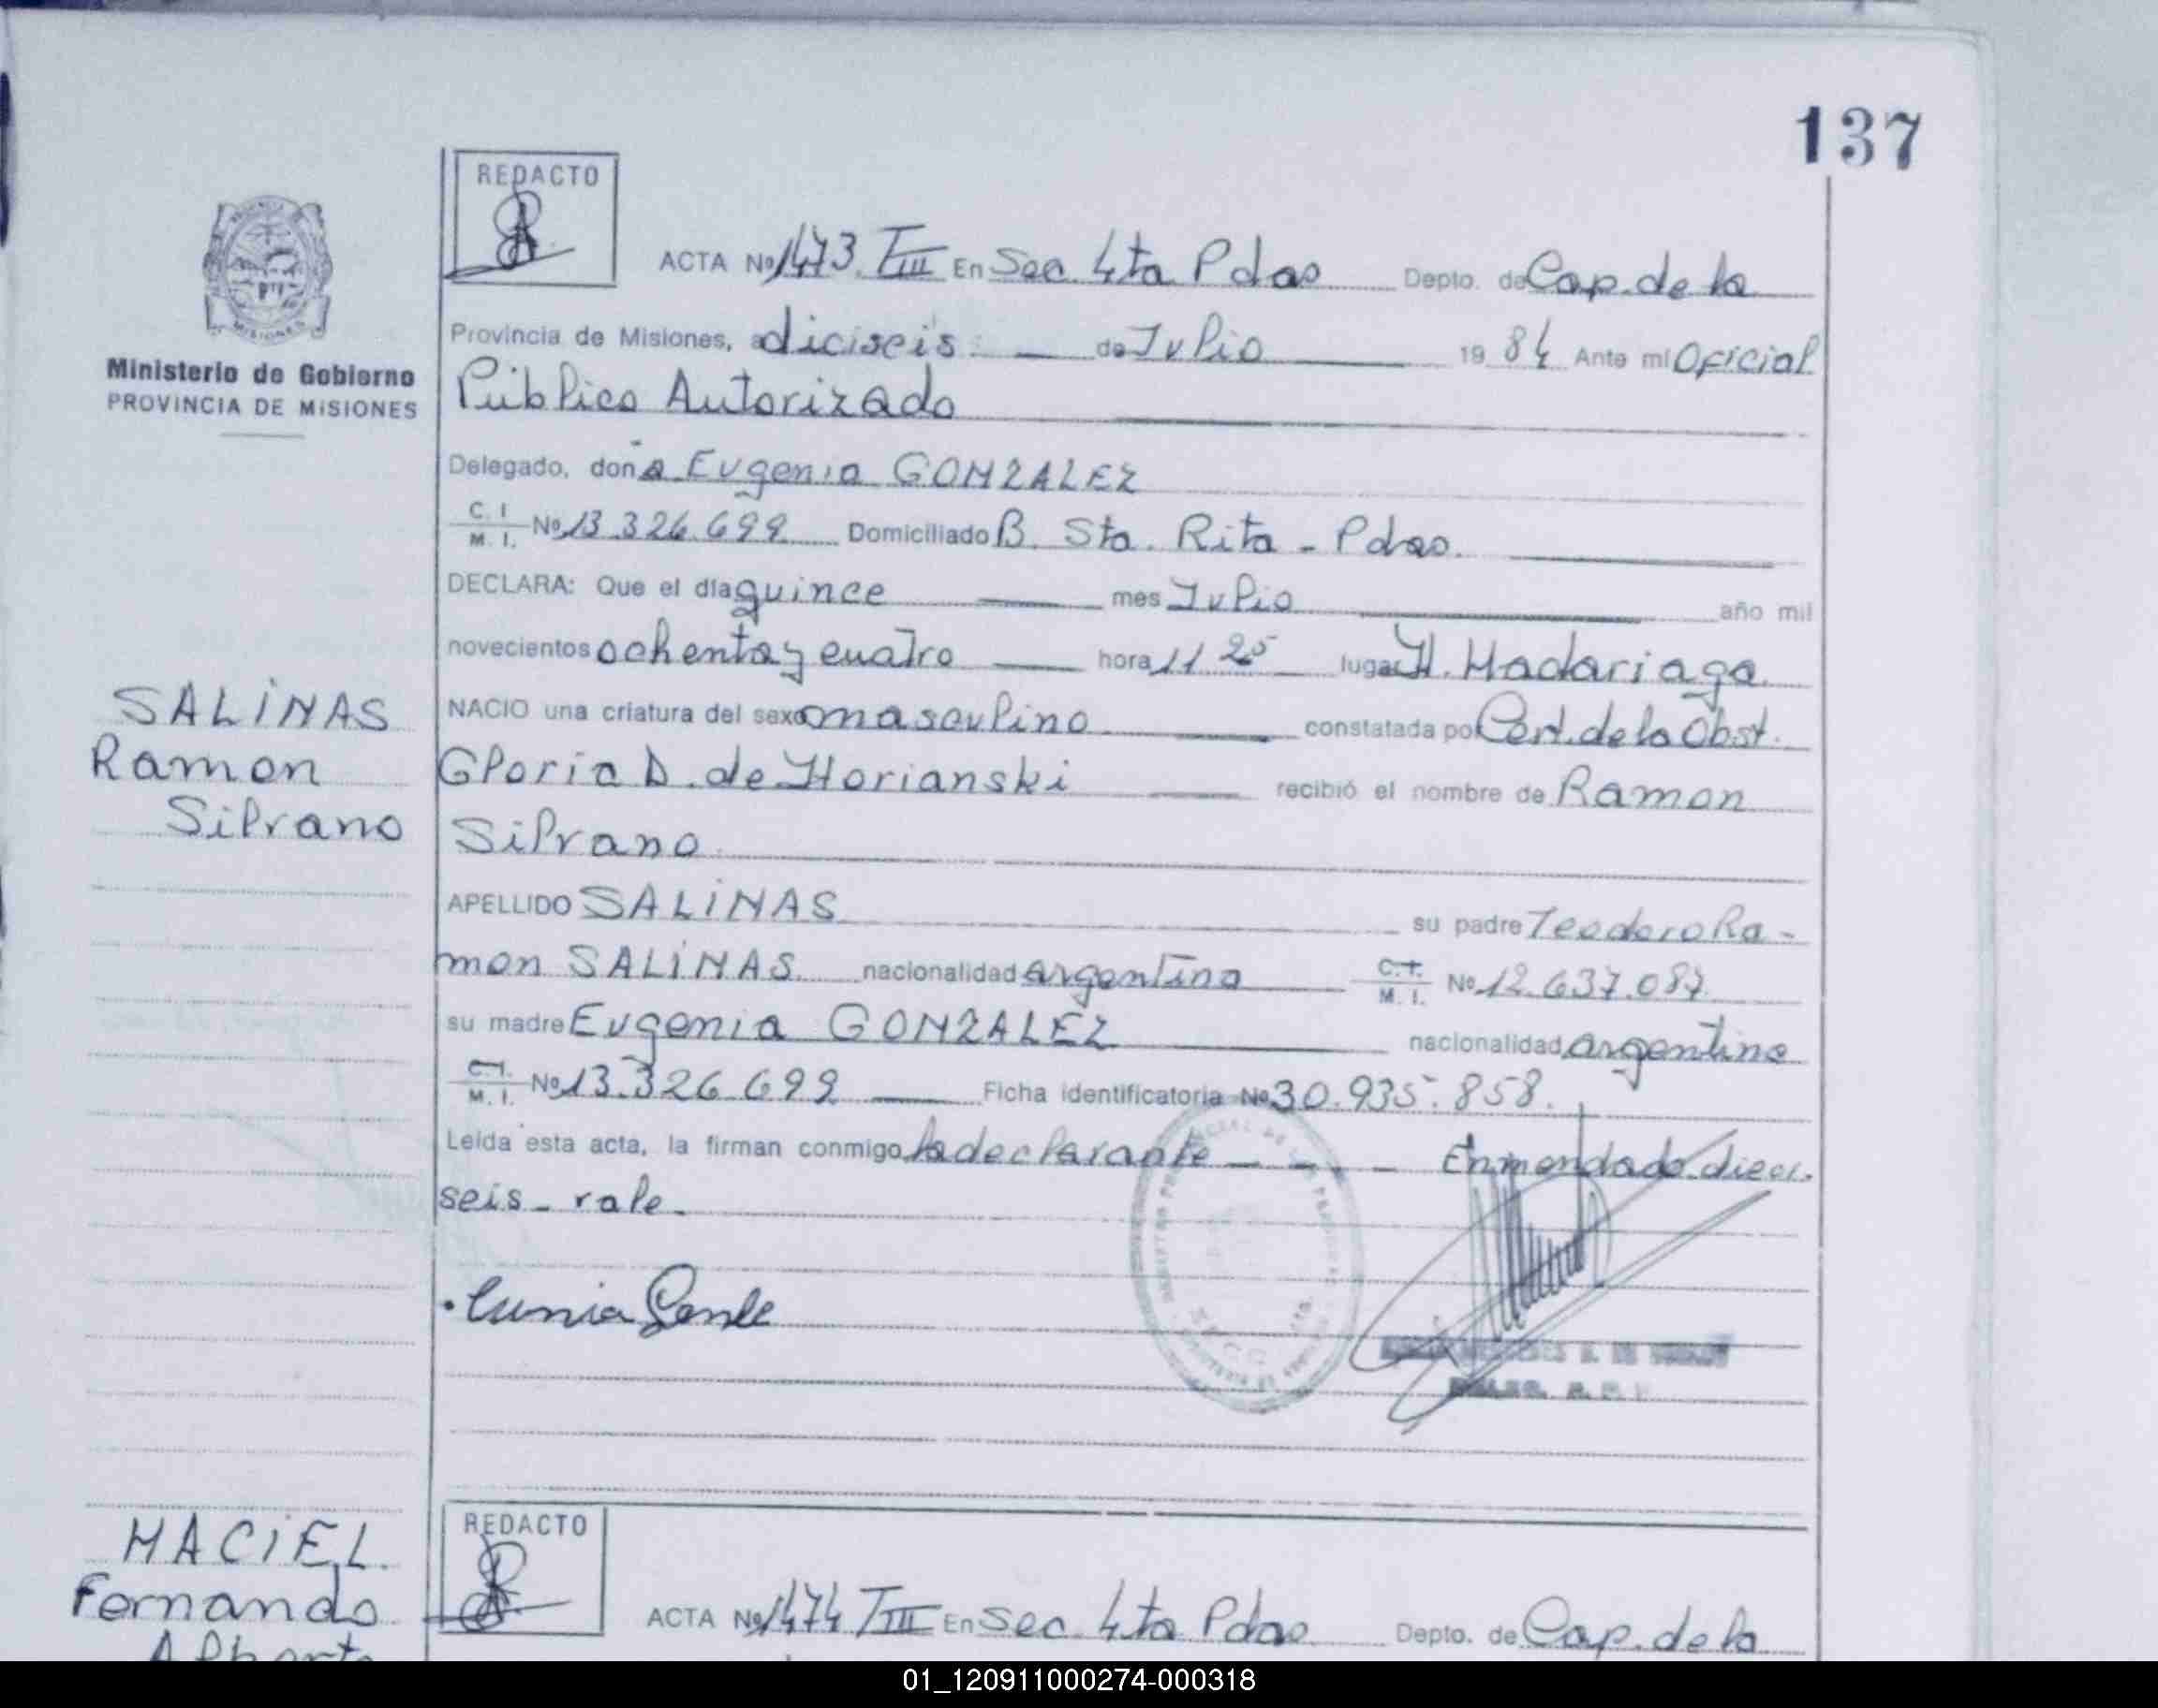 137
REDACTO
ACTA Nº 1473 TIII En Sec. 4ta Pdas Depto. de Cap. de la
Provincia de Misiones, a diciseis de Julio 19 84 Ante mi Oficial
Público Autorizado
Ministerio de Gobierno
PROVINCIA DE MISIONES
Delegado, don a Eugenia GONZALEZ
C. I. M. I. Nº 13.326.699 Domiciliado B. Sta. Rita - Pdas.
DECLARA: Que el día quince mes Julio año mil
novecientos ochenta y cuatro hora 11 25 lugar H. Madariaga
SALINAS
Ramon
Silvano
NACIO una criatura del sexo masculino constatada por Cert. de la Obst.
Gloria D. de Horianski recibió el nombre de Ramon
Silvano
APELLIDO SALINAS su padre Teodoro Ra-
mon SALINAS nacionalidad argentina C. I. M. I. Nº 12.637.087
su madre Eugenia GONZALEZ nacionalidad argentina
C. I. M. I. Nº 13.326.699 Ficha identificatoria Nº 30.935.858.
Leída esta acta, la firman conmigo la declarante Enmendado dieci-
seis - vale.
REDACTO
MACIEL
Fernando
Alberto
ACTA Nº 1474 TIII En Sec. 4ta Pdas Depto. de Cap. de la
01_120911000274-000318